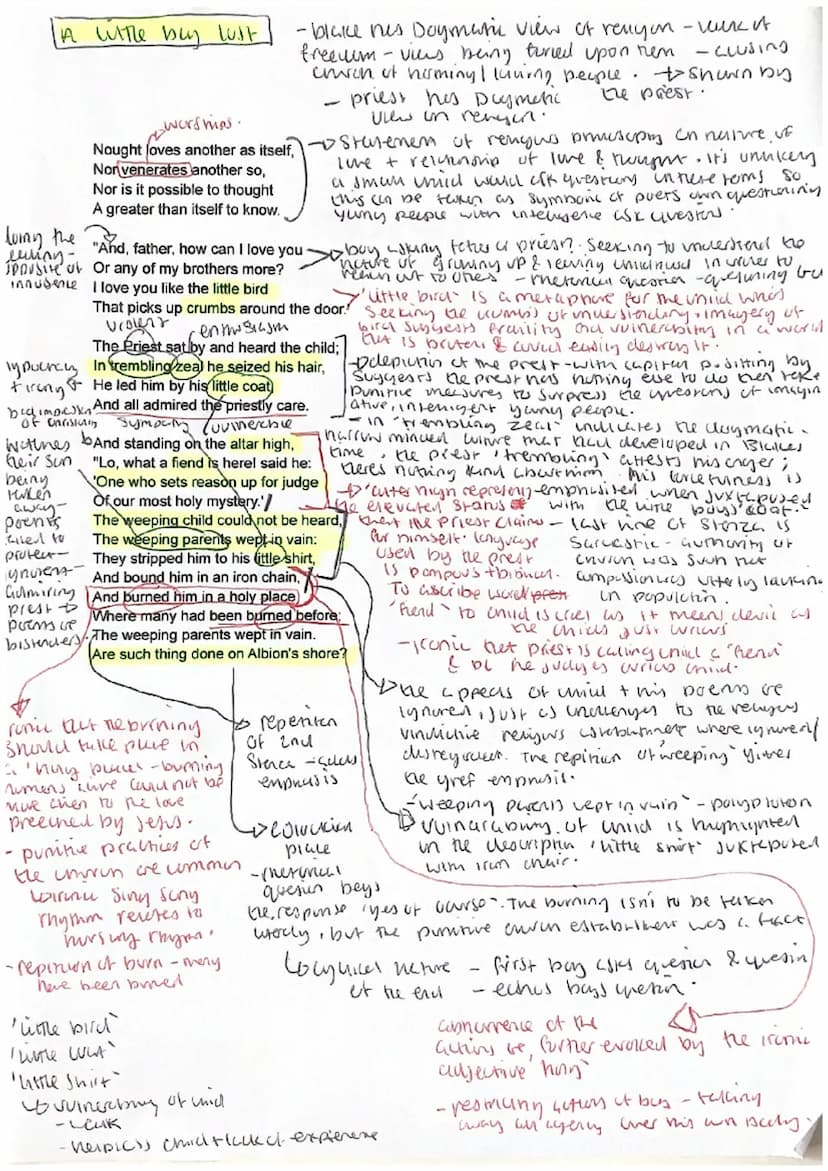 A little boy lost
- blake hes Dogmatic view of religion - lack of
freedom - views being forced upon them - causing
church of harming / luring people. → shown by
the priest.
- priest hes Dogmatic
view on religion.
worships.
Nought loves another as itself,
Nor venerates another so,
Nor is it possible to thought
A greater than itself to know.
→ Statement of religious philosophy on nature of
love + relationship of love & thought. It's unlikely
a small child would ask questions in these terms so
this can be taken as symbolic of poets own questioning
young people with intelligence ask questions.
"And, father, how can I love you
Or any of my brothers more?
I love you like the little bird
That picks up crumbs around the door.'
opposite of
innocence
boy asking father or priest? Seeking to understand the
nature of growing up & leaving childhood in order to
reach out to others - rhetorical question - questioning
'little bird' is a metaphor for the child who's
seeking the crumbs of understanding. imagery of
bird suggests fragility and vulnerability in a world
that is brutal & could easily destroy it.
violent
enthusiasm
The Priest sat by and heard the child;
In trembling zeal he seized his hair,
He led him by his little coat,
And all admired the priestly care.
hypocrisy
+ irony
sympathy
vulnerable
→ depiction of the priest - with capital p. sitting by
suggests the prest has nothing else to do then take
punitive measures to surpress the questions of imagin
ative, intelligent young people.
- in 'trembling zeal' indicates the dogmatic -
narrow minded culture that had developed in Blakes
time, the priest 'trembling' attests his anger;
theres nothing kind about him. His forcefulness is
emphasised when juxtaposed
with the little boys coat.
And standing on the altar high,
"Lo, what a fiend is here! said he:
'One who sets reason up for judge
Of our most holy mystery.'
The weeping child could not be heard,
The weeping parents wept in vain:
They stripped him to his little shirt,
And bound him in an iron chain,
And burned him in a holy place
Where many had been burned before;
The weeping parents wept in vain.
Are such thing done on Albion's shore?
witness
their son
being
taken
away -
parents
failed to
protect -
ignorent -
admiring
priest →
parents are
bistanders
→ 'alter high represents
the elevated status
that the Priest claims
for himself. language
used by the prest
is pompous + biblical.
To ascribe word
'fiend' to child is cruel as it means devil as
the childs just curious
- ironic that priest is calling child a 'fiend'
- last line of stanza is
sarcastic - authority of
church was such that
compassion was utterly lacking
in population.
the appeals of child + his parents are
ignored, just as challenges to the religous
vindictive religous establishment where ignored/
disregarded. The repition of 'weeping' gives
the grief emphasis.
'weeping parents wept in vain' - polyptoton
vulnarability of child is highlighted
in the description 'little shirt' juxtaposed
with iron chair.
ironic that the burning
should take place in
a 'holy place' - burning
humans alive could not be
preeched by Jesus.
- punitive practices of
the church are common
Sing Song
rhythm relates to
nursury rhyme.
- repition of burn - many
have been burned
→ repetion
of 2nd
Stanza - adds
emphasis
- rhetorical
question begs
the response 'yes of course'. The burning isn't to be taken
literally, but the punitive church establishment was a fact
cyclical nature - first boy asks question & question
at the end - echos boys question.
'little bird'
'little coat'
'little shirt'
↳ vulnerability of child
- weak
- helpless child + lack of experience
abhorrence of the
actions are further evoked by the ironic
adjective 'holy'
- restricting actions of boy - taking
away all agency over his own body.